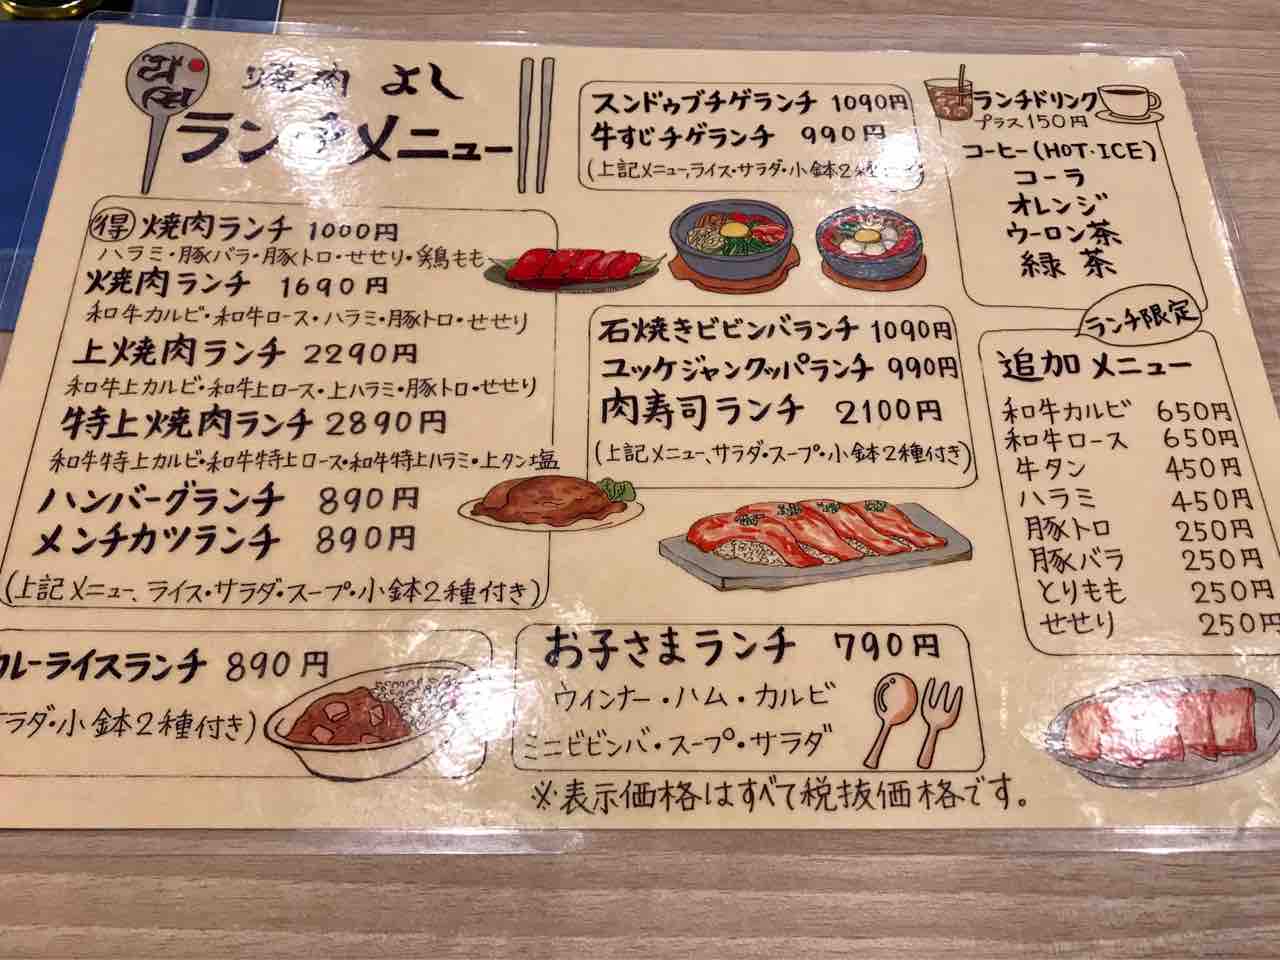 焼肉 よし
ランチメニュー
得 焼肉ランチ 1000円
ハラミ・豚バラ・豚トロ・せせり・鶏もも
焼肉ランチ 1690円
和牛カルビ・和牛ロース・ハラミ・豚トロ・せせり
上焼肉ランチ 2290円
和牛上カルビ・和牛上ロース・上ハラミ・豚トロ・せせり
特上焼肉ランチ 2890円
和牛特上カルビ・和牛特上ロース・和牛特上ハラミ・上タン塩
ハンバーグランチ 890円
メンチカツランチ 890円
(上記メニュー、ライス・サラダ・スープ・小鉢2種付き)
カレーライスランチ 890円
ラダ・小鉢2種付き)
スンドゥブチゲランチ 1090円
牛すじチゲランチ 990円
(上記メニュー、ライス・サラダ・小鉢2種付き)
石焼きビビンバランチ 1090円
ユッケジャンクッパランチ 990円
肉寿司ランチ 2100円
(上記メニュー、サラダ・スープ・小鉢2種付き)
お子さまランチ 790円
ウインナー・ハム・カルビ
ミニビビンバ・スープ・サラダ
※表示価格はすべて税抜価格です。
ランチドリンク
プラス150円
コーヒー(HOT・ICE)
コーラ
オレンジ
ウーロン茶
緑茶
ランチ限定
追加メニュー
和牛カルビ 650円
和牛ロース 650円
牛タン 450円
ハラミ 450円
豚トロ 250円
豚バラ 250円
とりもも 250円
せせり 250円